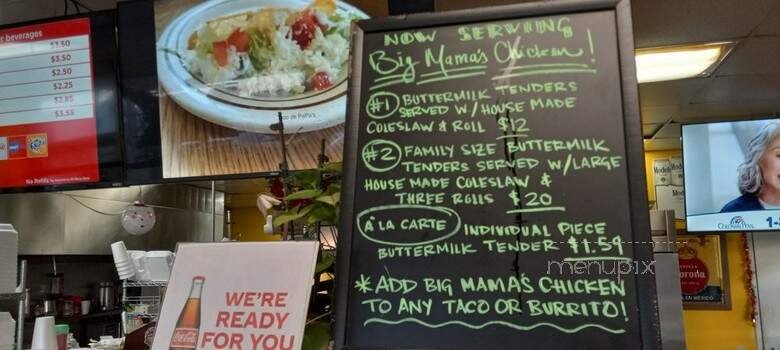 r beverages
$3.50
$3.50
$2.50
$2.25
$2.85
$3.55
No Refills
NOW SERVING
Big Mama's Chicken!
#1 BUTTERMILK TENDERS
SERVED W/HOUSE MADE
COLESLAW & ROLL $12
#2 FAMILY SIZE BUTTERMILK
TENDERS SERVED W/LARGE
HOUSE MADE COLESLAW &
THREE ROLLS $20
À LA CARTE INDIVIDUAL PIECE
BUTTERMILK TENDER $1.59
*ADD BIG MAMA'S CHICKEN
TO ANY TACO OR BURRITO!
menupix
WE'RE
READY
FOR YOU
Coca-Cola
Modelo
COLONIAL PENN
1-8
Corona